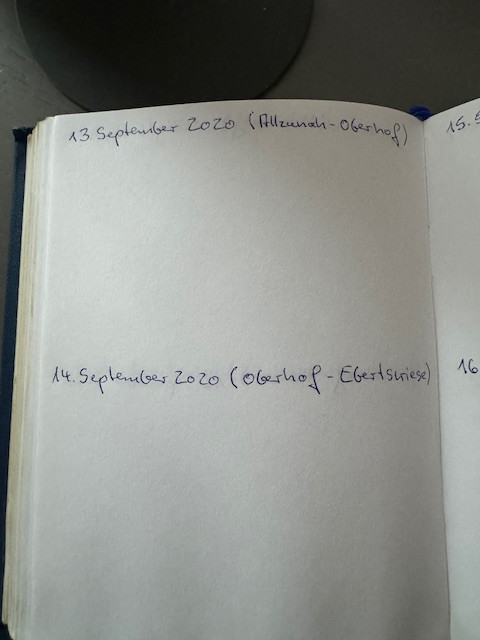 13. September 2020 (Allzunah - Oberhof)
14. September 2020 (Oberhof - Ebertswiese)
15. S
16